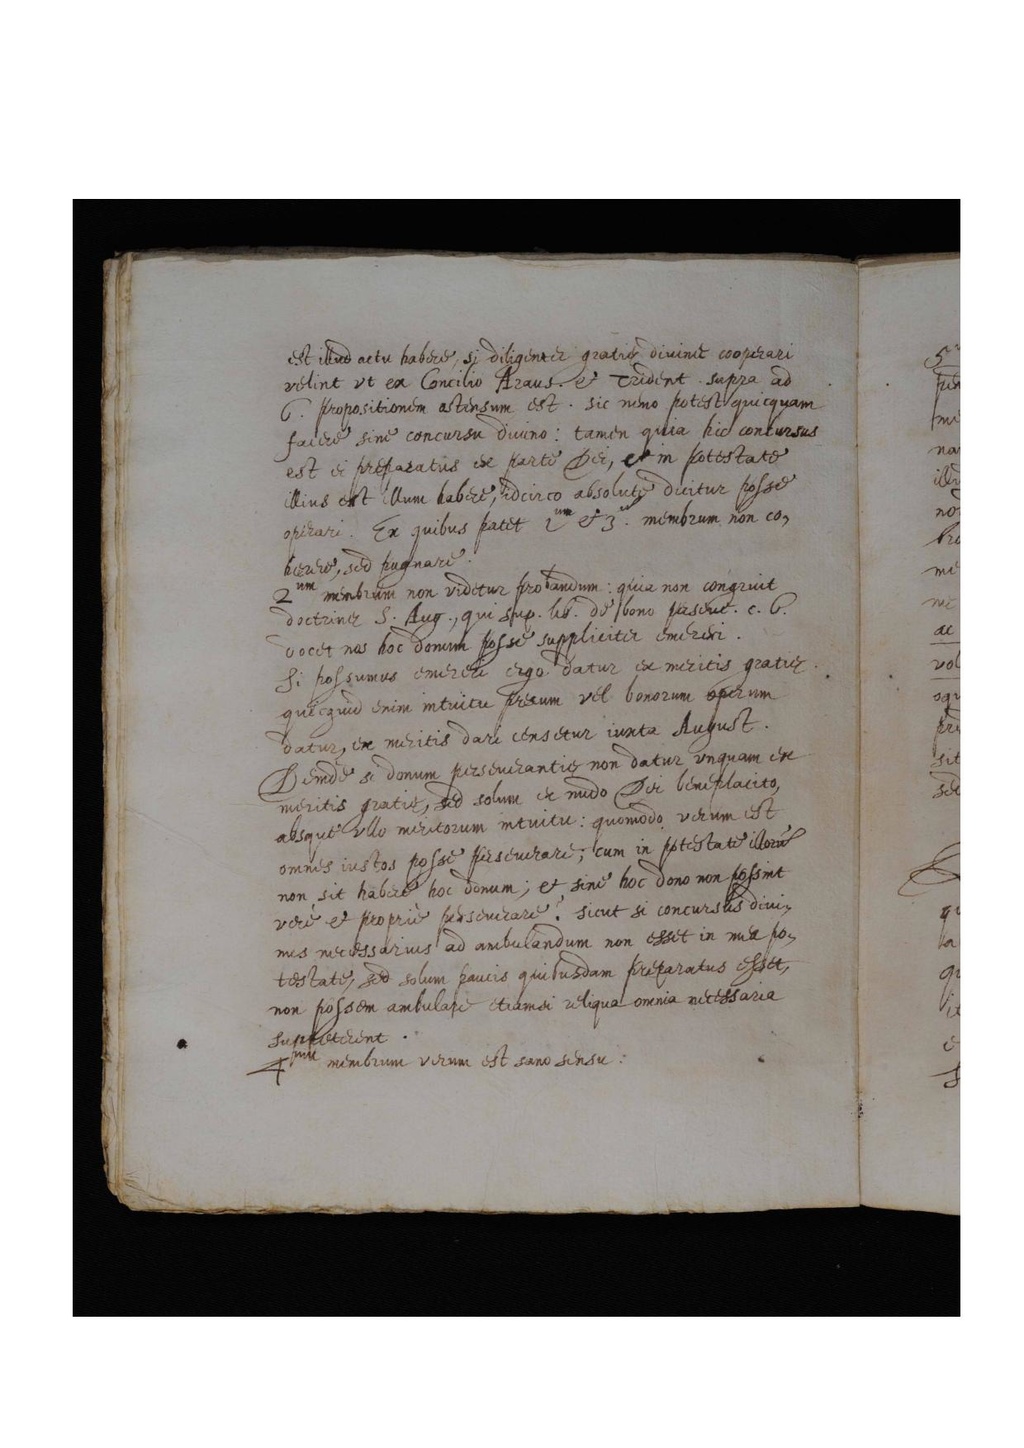 est illud actu habere, si diligenter gratię divinę cooperari
velint vt ex Concilio Araus. et Trident. supra ad
6. propositionem ostensum est. sic nemo potest quicquam
facere sine concursu divino: tamen quia hic concursus
est ei preparatus ex parte Dei, et in potestate
illius est illum habere, idcirco absolute dicitur posse
operari. Ex quibus patet 2um et 3um. membrum non co,
herere, sed pugnare.
2um membrum non videtur probandum: quia non congruit
doctrinę S. Aug., qui sup. lib. de bono persev. c. 6.
docet nos hoc donum posse suppliciter emereri.
Si possumus emereri ergo datur ex meritis gratię.
quicquid enim intuitu precum vel bonorum operum
datur, ex meritis dari censetur iuxta August.
Deinde si donum perseverantię non datur vnquam ex
meritis gratię, sed solum ex nudo Dei beneplacito,
absque vllo meritorum intuitu: quomodo verum est
omnes iustos posse perseverare; cum in potestate illorum
non sit habere hoc donum; et sine hoc dono non possint
vere et proprie perseverare? sicut si concursus divi,
nus necessarius ad ambulandum non esset in mea po,
testate, sed solum paucis quibusdam preparatus esset,
non possem ambulare etiamsi reliqua omnia necessaria
suppeterent.
4um membrum verum est sano sensu: